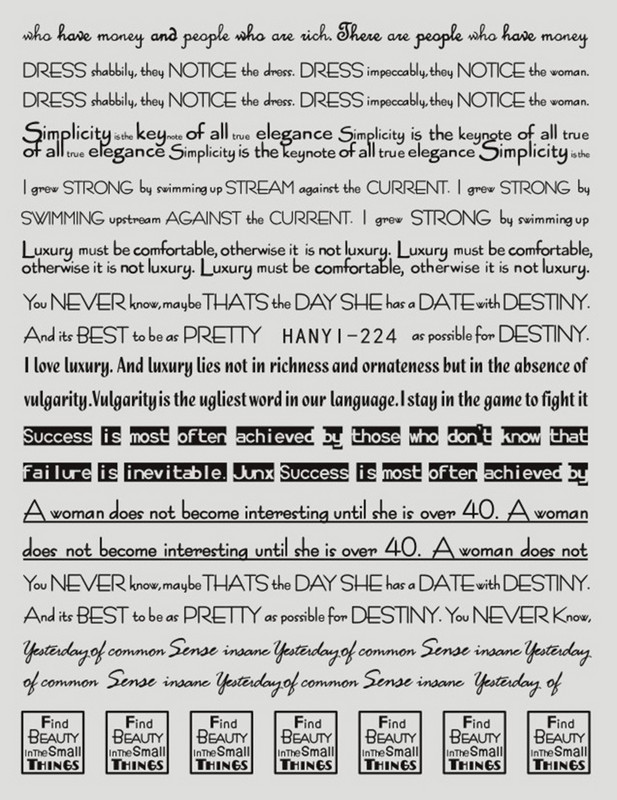 who have money and people who are rich. There are people who have money
DRESS shabbily, they NOTICE the dress. DRESS impeccably, they NOTICE the woman.
DRESS shabbily, they NOTICE the dress. DRESS impeccably, they NOTICE the woman.
Simplicity is the keynote of all true elegance Simplicity is the keynote of all true
of all true elegance Simplicity is the keynote of all true elegance Simplicity is the
I grew STRONG by swimming up STREAM against the CURRENT. I grew STRONG by
SWIMMING upstream AGAINST the CURRENT. I grew STRONG by swimming up
Luxury must be comfortable, otherwise it is not luxury. Luxury must be comfortable,
otherwise it is not luxury. Luxury must be comfortable, otherwise it is not luxury.
You NEVER know, maybe THATS the DAY SHE has a DATE with DESTINY.
And its BEST to be as PRETTY HANYI-224 as possible for DESTINY.
I love luxury. And luxury lies not in richness and ornateness but in the absence of
vulgarity.Vulgarity is the ugliest word in our language. I stay in the game to fight it
Success is most often achieved by those who don't know that
failure is inevitable. Junx Success is most often achieved by
A woman does not become interesting until she is over 40. A woman
does not become interesting until she is over 40. A woman does not
You NEVER know, maybe THATS the DAY SHE has a DATE with DESTINY.
And its BEST to be as PRETTY as possible for DESTINY. You NEVER Know,
Yesterday of common Sense insane Yesterday of common Sense insane Yesterday
of common Sense insane Yesterday of common Sense insane Yesterday of
Find Find Find Find Find Find Find
BEAUTY BEAUTY BEAUTY BEAUTY BEAUTY BEAUTY BEAUTY
InThe Small InThe Small InThe Small InThe Small InThe Small InThe Small InThe Small
THINGS THINGS THINGS THINGS THINGS THINGS THINGS